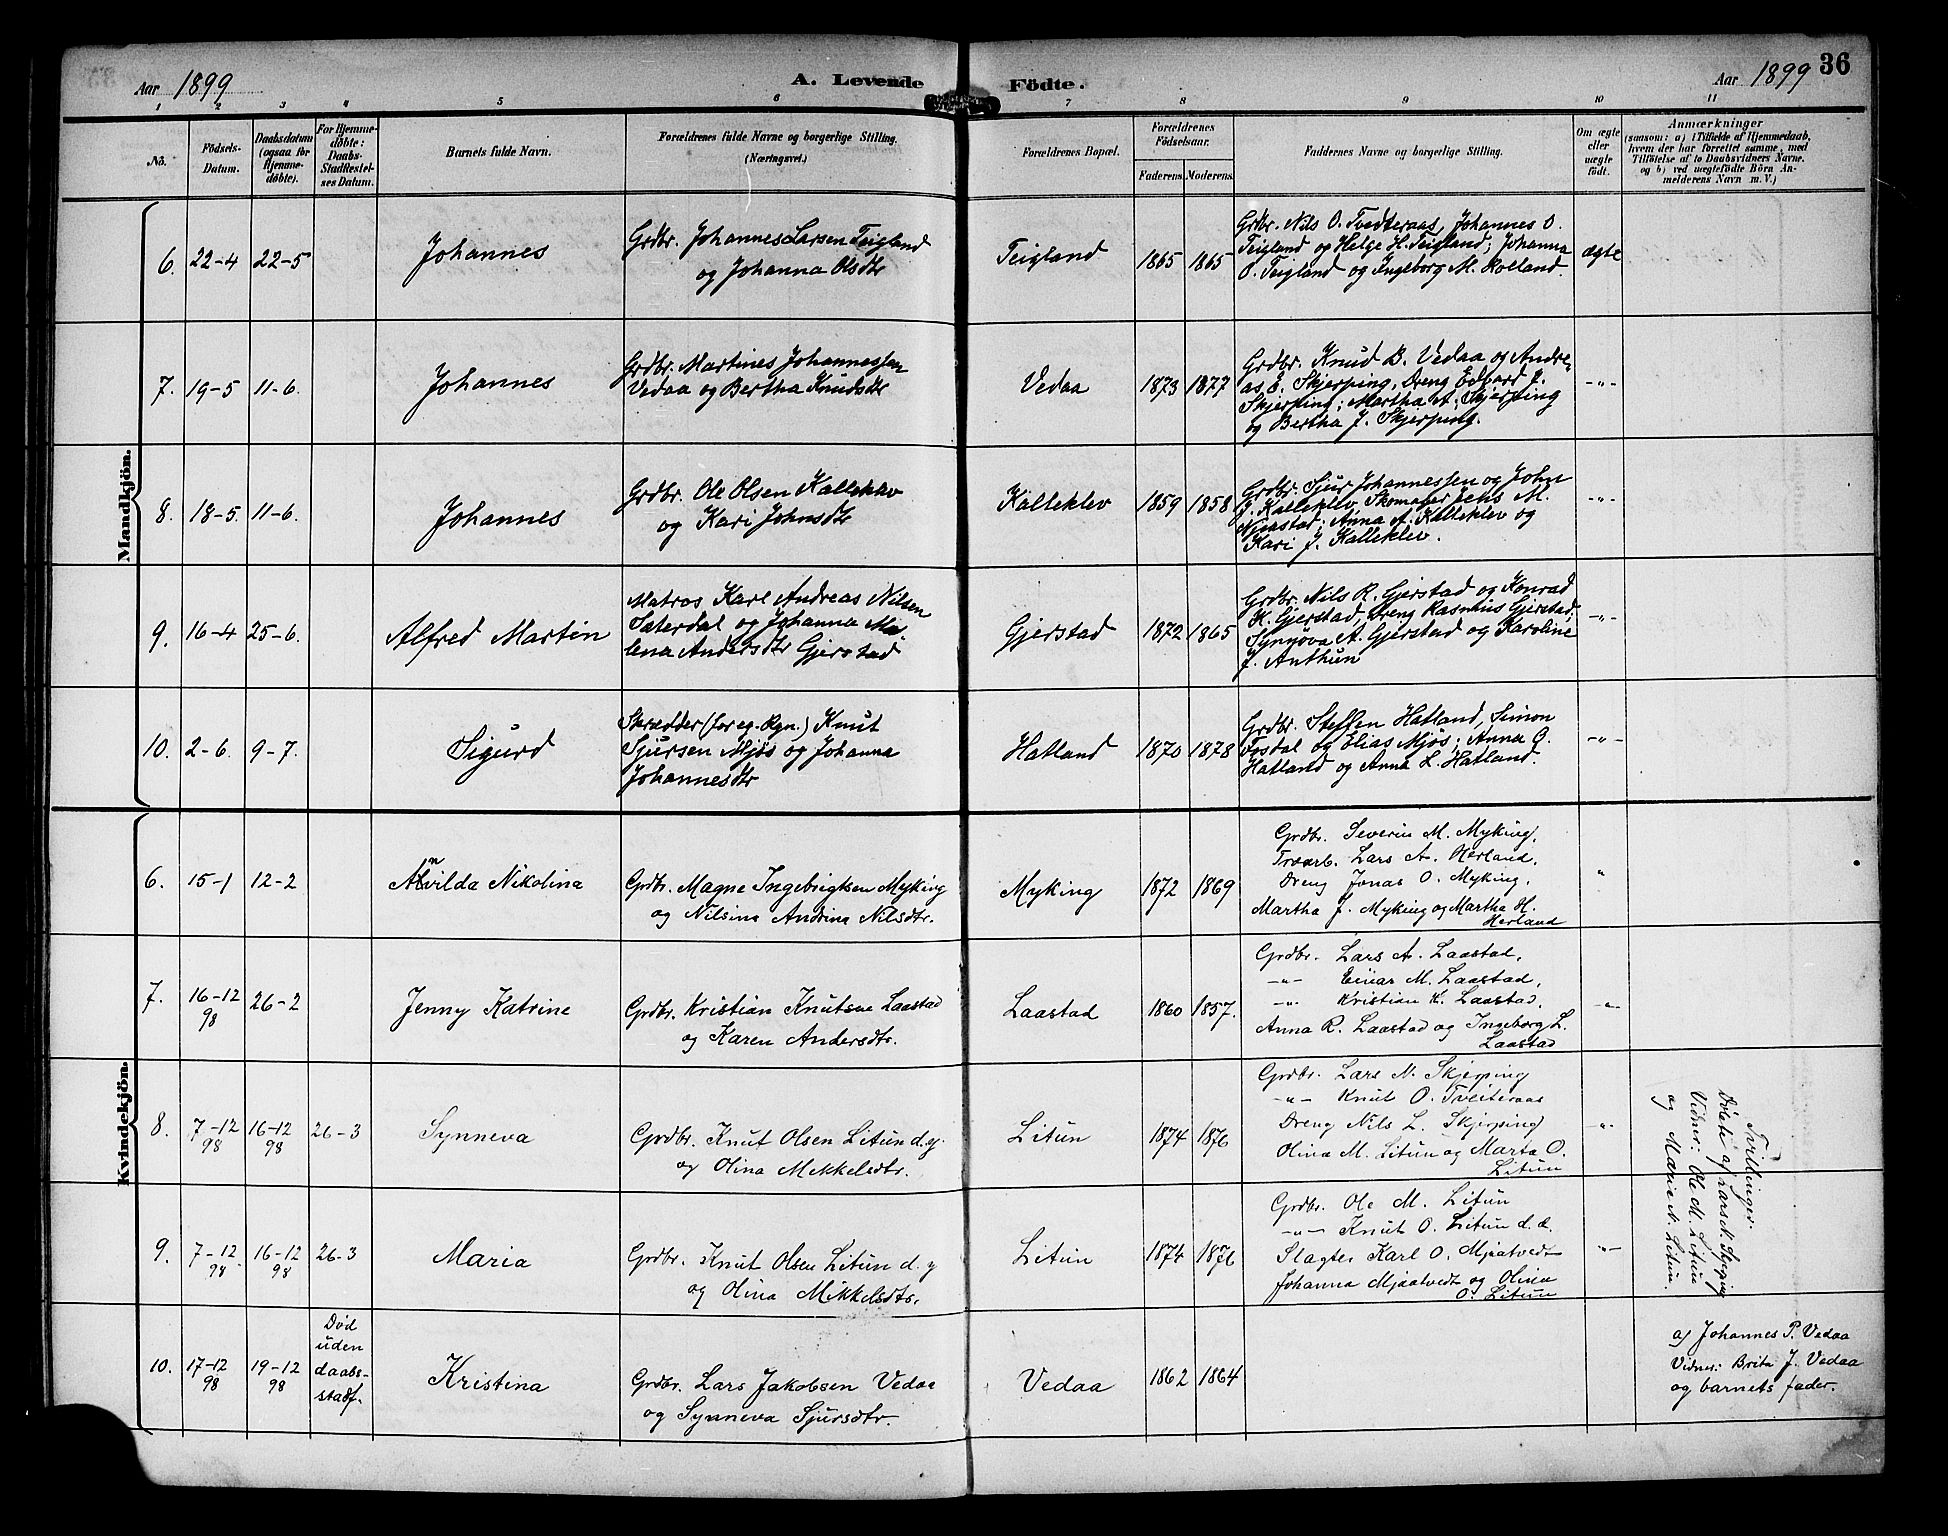 Aar 1899
A. Levende Födte.
Aar 1899
36
1 2 3 4 5 6 7 8 9 10 11
No.
Födsels-Datum.
Daabsdatum (ogsaa for Hjemme-döbte).
For Hjemme-döbte: Daabs-Stadfæstel-ses Datum.
Barnets fulde Navn.
Forældrenes fulde Navne og borgerlige Stilling.
(Næringsvei.)
Forældrenes Bopæl.
Forældrenes Födselsaar.
Faderens. Moderens.
Faddernes Navne og borgerlige Stilling.
Om ægte eller uægte födt.
Anmærkninger
(saasom: a) i Tilfælde af Hjemmedaab, hvem der har forrettet samme, med Tilföielse af to Daabsvidners Navne, og b) ved uægtefödte Börn An-melderens Navn m. V.)
Mandkjön.
6. 22-4 22-5 Johannes
Grdbr. Johannes Larsen Teigland
og Johanna Olsdtr
Teigland 1865 1865
Grdbr. Nils O. Tvedteraas, Johannes O.
Teigland og Helge H. Teigland; Johanna
O. Teigland og Ingeborg M. Rolland.
ægte
7. 19-5 11-6. Johannes
Grdbr. Martines Johannessen
Vedaa og Bertha Knudsdtr
Vedaa 1873 1877
Grdbr. Knud B. Vedaa og Andre-
as E. Skjerping, Dreng Edvard J.
Skjerping; Martha A. Skjerping
og Bertha J. Skjerping.
-"-
8. 18-5. 11-6. Johannes
Grdbr. Ole Olsen Kalleklev
og Kari Johnsdtr
Kalleklev 1859 1858
Grdbr. Sjur Johannessen og John
J. Kalleklev, Skomager Jens M.
Njaastad; Anna A. Kalleklev og
Kari J. Kalleklev.
-"-
9. 16-4 25-6. Alfred Martin
Matros Karl Andreas Nilsen
Saterdal og Johanna Ma-
lena Andersdtr Gjerstad
Gjerstad 1872 1865
Grdbr. Nils R. Gjerstad og Konrad
K. Gjerstad, Dreng Rasmus Gjerstad,
Synnøva A. Gjerstad og Karoline
J. Anthun
-"-
10. 2-6. 9-7. Sigurd
Skrædder (for eg. Rgn.) Knut
Sjursen Mjøs og Johanna
Johannesdtr
Hatland 1870 1878
Grdbr. Steffen Hatland, Simon
Fosdal og Elias Mjøs; Anna O.
Hatland og Anna L. Hatland.
-"-
Kvindekjön.
6. 15-1 12-2 Alvilda Nikolina
Grdbr. Magne Ingebrigtsen Myking
og Nilsina Andrina Nilsdtr.
Myking 1872 1869
Grdbr. Severin M. Myking,
Lars A. Herland,
Dreng Jonas O. Myking,
Martha J. Myking og Martha H.
Herland
"
7. 16-12 98 26-2 Jenny Katrine
Grdbr. Kristian Knutsen Laastad
og Karen Andersdtr.
Laastad 1860 1857.
Grdbr. Lars A. Laastad,
-"- Einar M. Laastad,
-"- Kristian K. Laastad,
Anna R. Laastad og Ingeborg L.
Laastad
-"-
8. 7-12 98 16-12 98 26-3 Synneva
Grdbr. Knut Olsen Litun d.y.
og Olina Mekkelsdtr.
Litun 1874 1876
Grdbr. Lars N. Skjerping
-"- Knut O. Tveiteraas
Dreng Nils L. Skjerping
Olina M. Litun og Marta O.
Litun
-"-
Tvillinger.
Døbte af Lars N. Skjerping
Vidner: Ole M. Litun
og Marie N. Litun.
9. 7-12 98. 16-12 98 26-3 Maria
Grdbr. Knut Olsen Litun d. y
og Olina Mikkelsdtr.
Litun 1874 1876
Grdbr. Ole M. Litun
-"- Knut O. Litun d. æ.
Slagter Karl O. Mjaatvedt
Johanna Mjaatvedt og Olina
O. Litun
-"-
10. 17-12 98 19-12 98
Død
uden
daabs-
stadf.
Kristina
Grdbr. Lars Jakobsen Vedaa
og Synneva Sjursdtr.
Vedaa 1862 1864
a) Johannes P. Vedaa
Vidner: Brita J. Vedaa
og barnets fader.